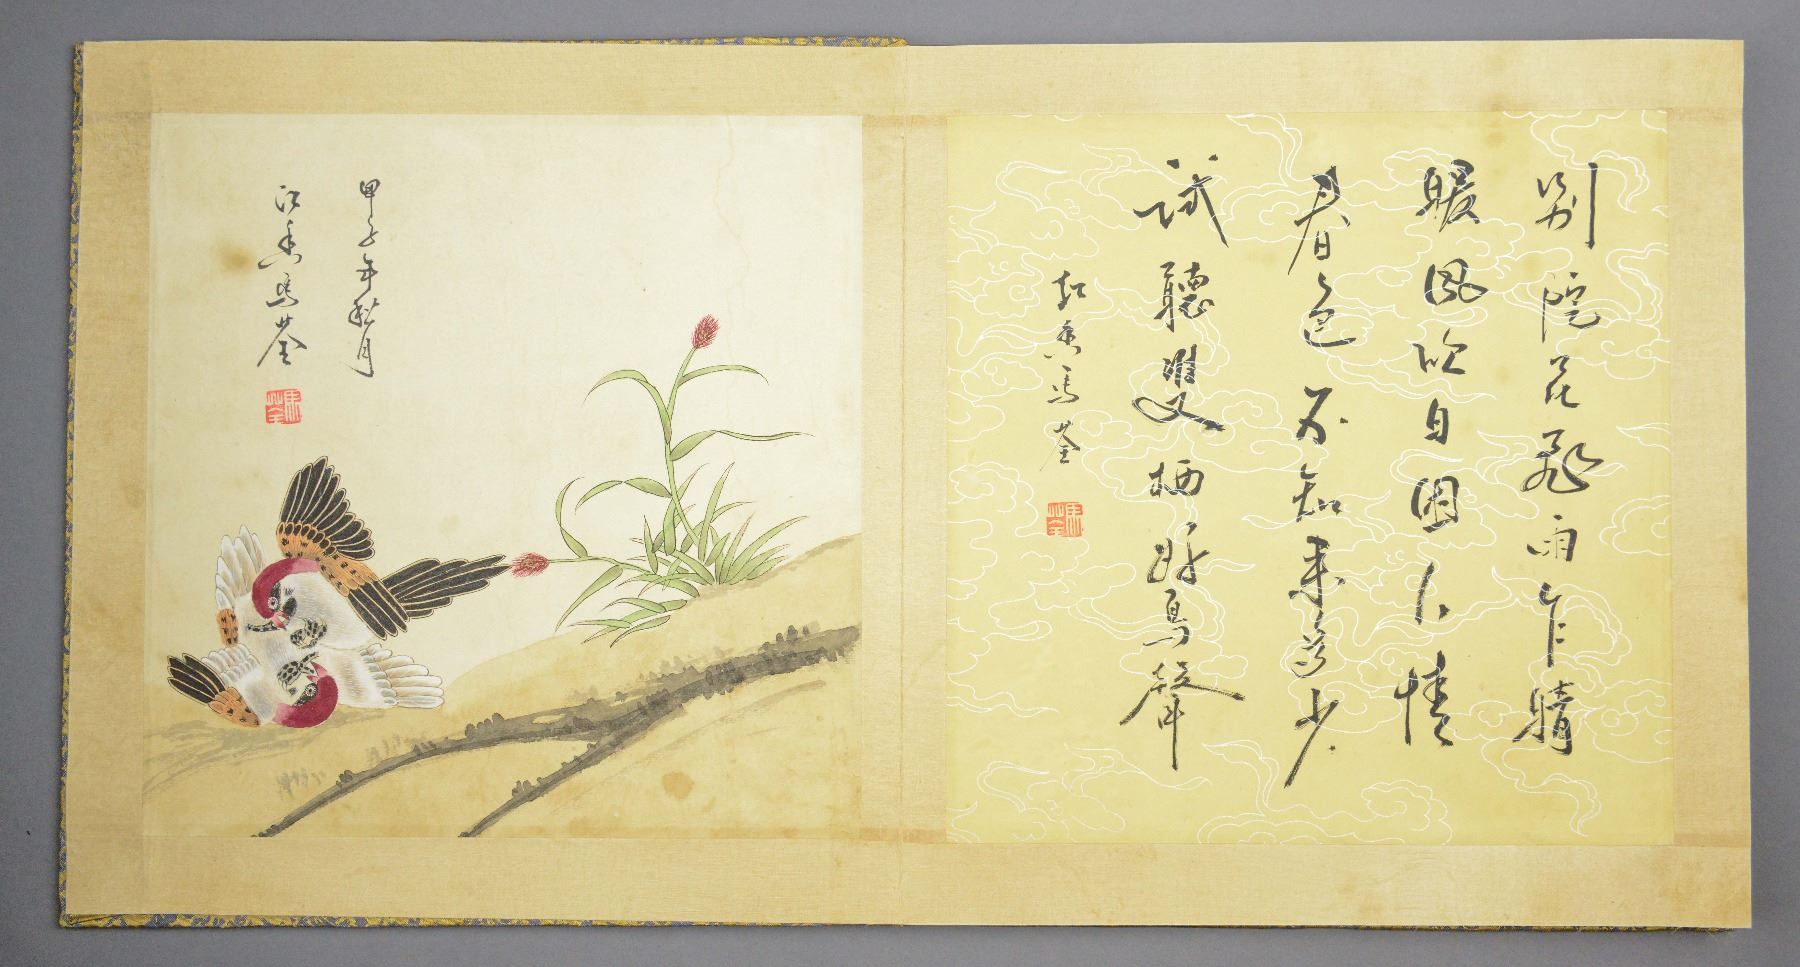 別院花飛雨乍晴
暖風吹自困人情
春色不知来多少
試聽雙栖好鳥聲
江香馬荃
馬荃
甲子年秋月
江香馬荃
馬荃